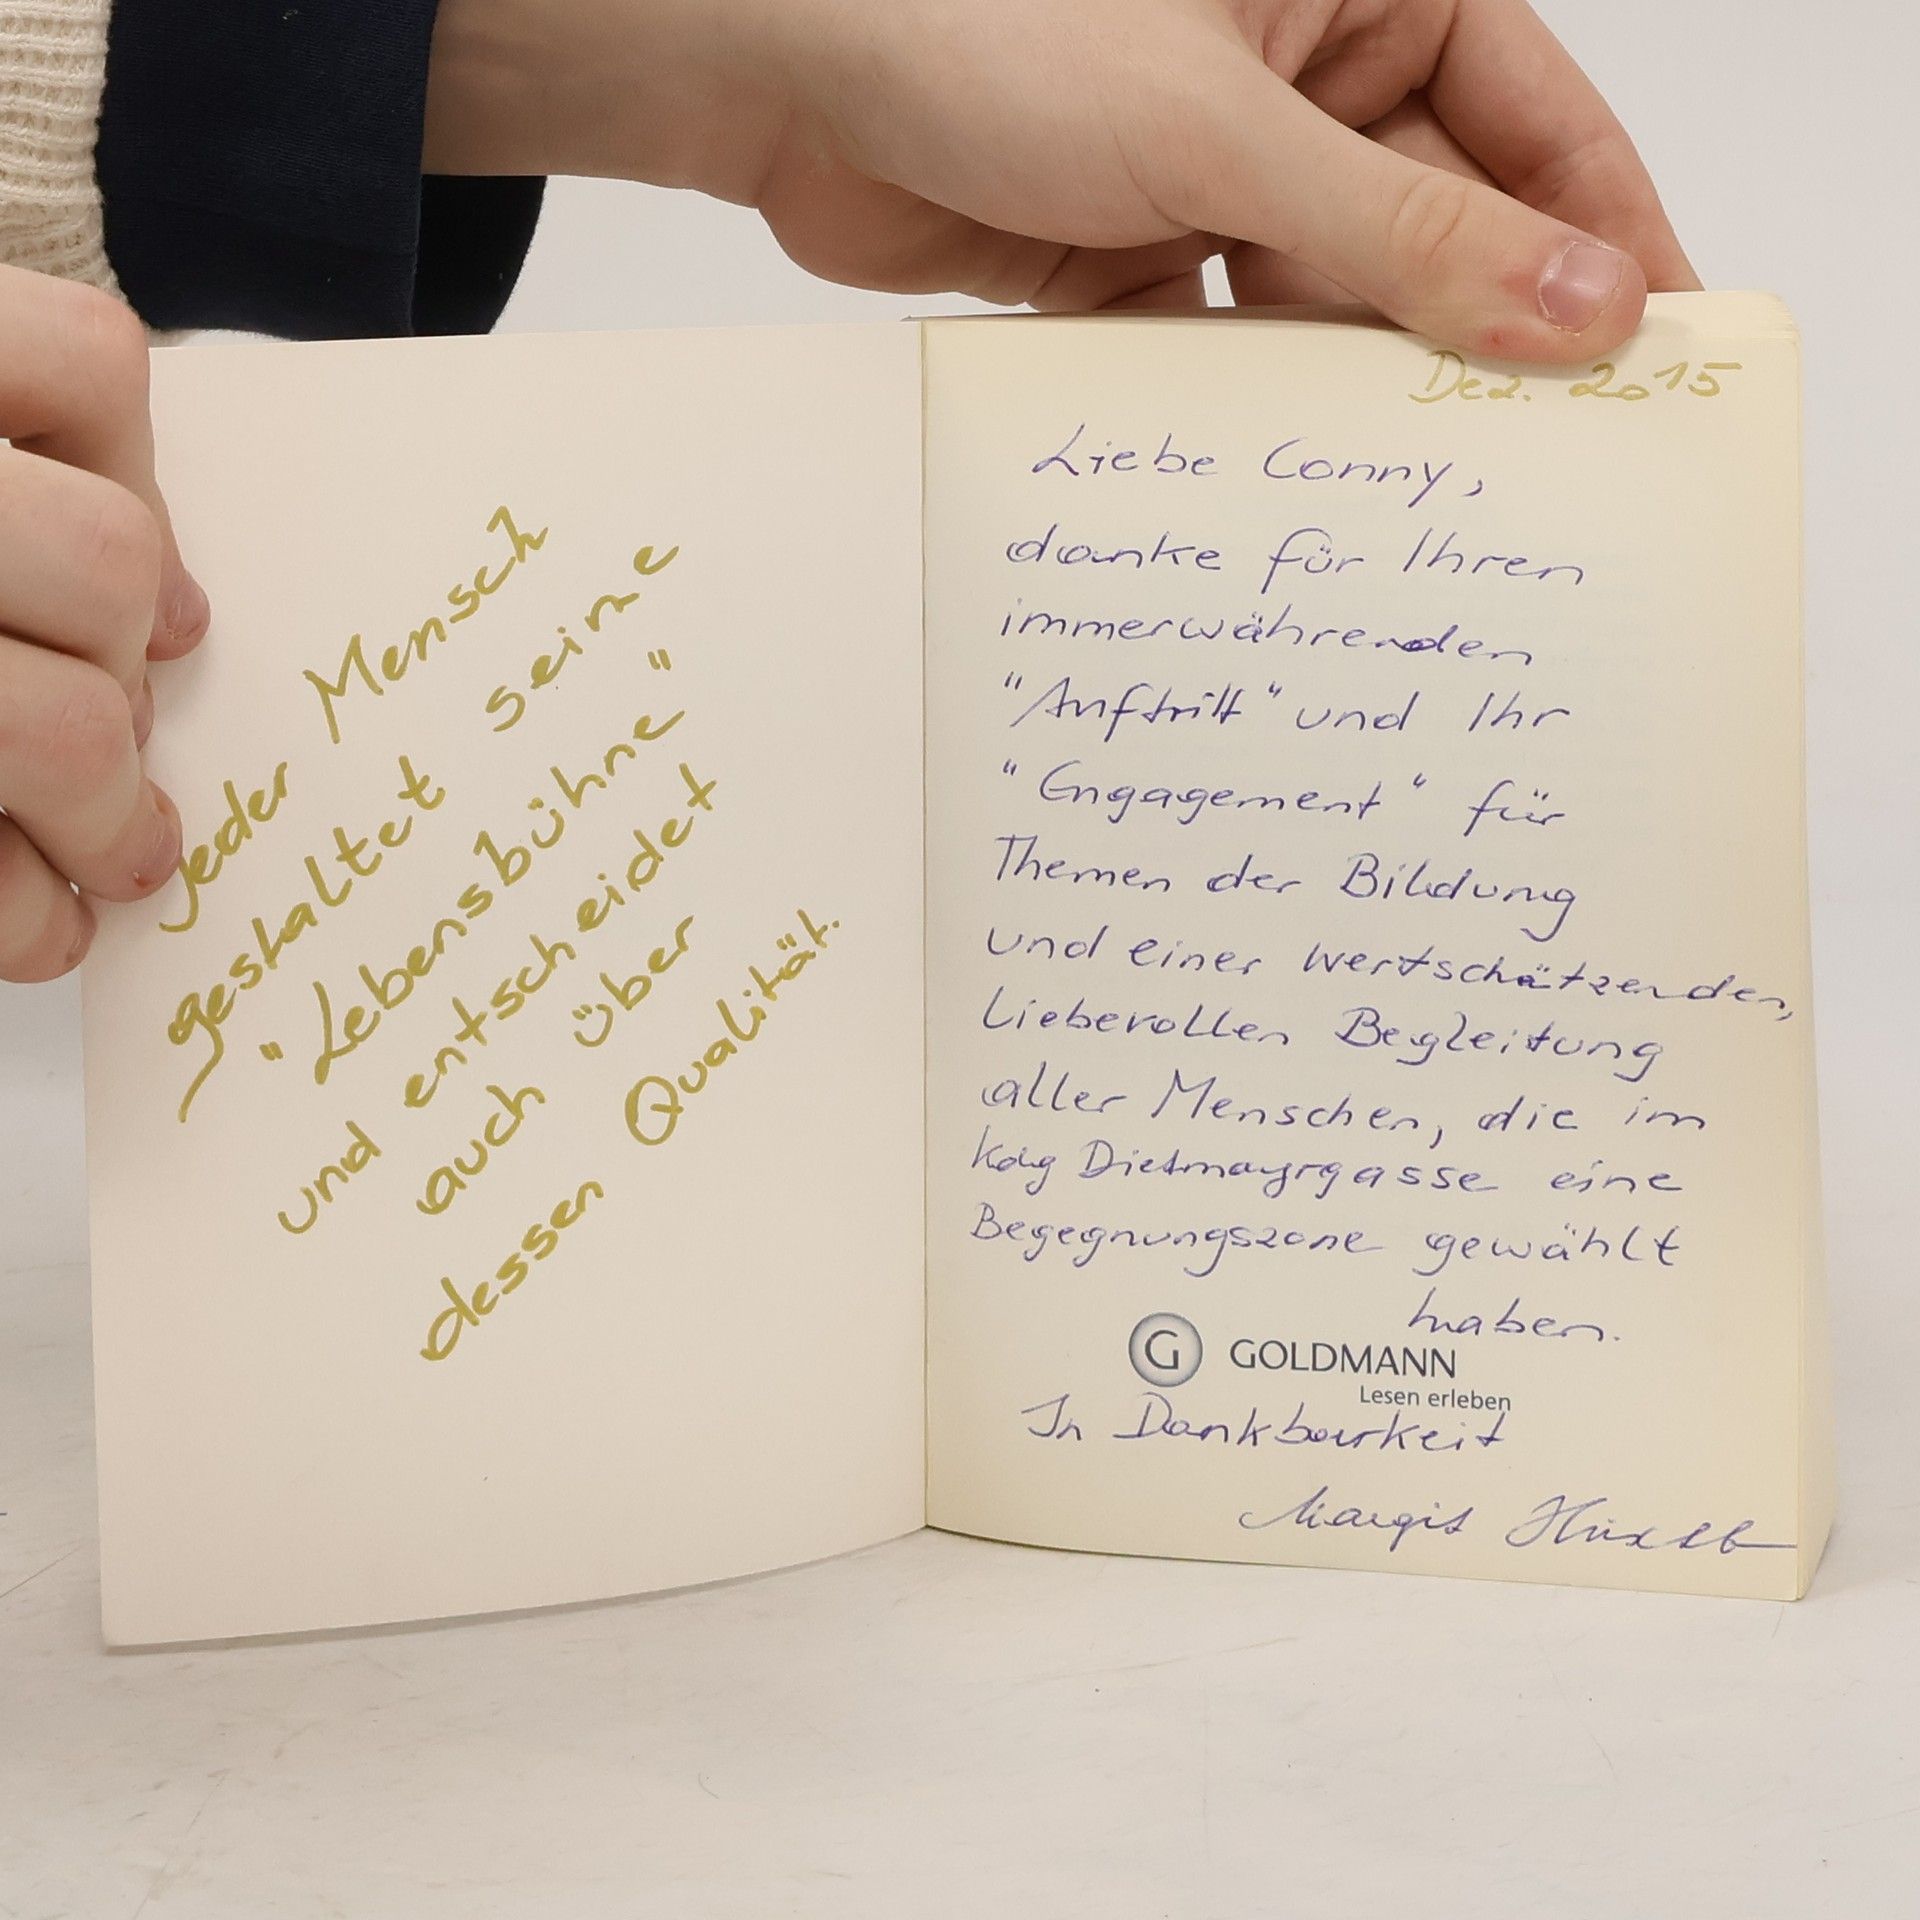 Jeder Mensch
gestaltet seine
"Lebensbühne"
und entscheidet
auch über
dessen Qualität.
Dez. 2015
Liebe Conny,
danke für Ihren
immerwährenden
"Auftritt" und Ihr
"Engagement" für
Themen der Bildung
und einer wertschätzenden,
liebevollen Begleitung
aller Menschen, die im
Kdg Dietmayrgasse eine
Begegnungszone gewählt
haben.
G GOLDMANN
Lesen erleben
In Dankbarkeit
Margit